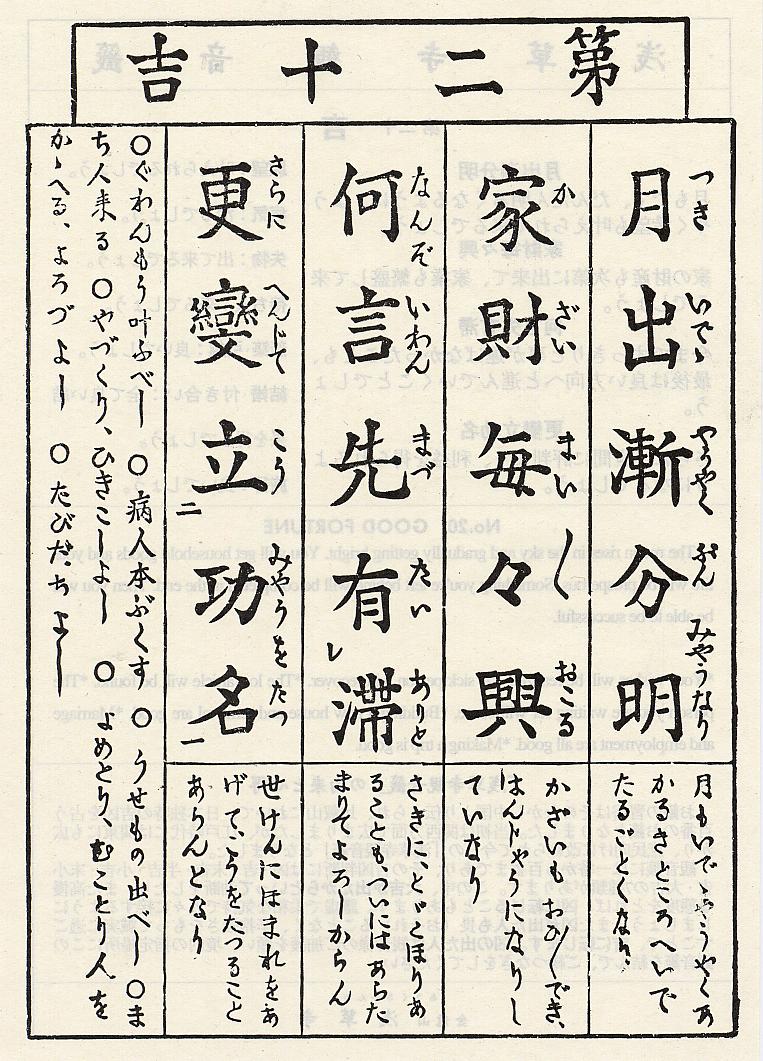 第二十吉
月出漸分明
つき いでゝ やうやく ぶん みやうなり
月もいでゝやうやくあ
かるきところへいで
たるごとくなり
家財毎々興
か ざい まい〱 おこる
かざいもおひ〱でき、
はんじやうになりし
ていなり
何言先有レ滞
なんぞ いわん まづ たい ありと
さきに、とゞこほりあ
ることもついにはあらた
まりてよろしからん
更變立二功名一
さらに へんじて こう みやうをたつ
せけんにほまれをあ
げて、こうをたつること
あらんとなり
〇ぐわんもう叶ふべし 〇病人本ぶくす 〇うせもの出べし 〇ま
ち人来る 〇やづくり、ひきこしよし 〇よめとり、むことり人を
かゝへる、よろづよし 〇たびだちよし